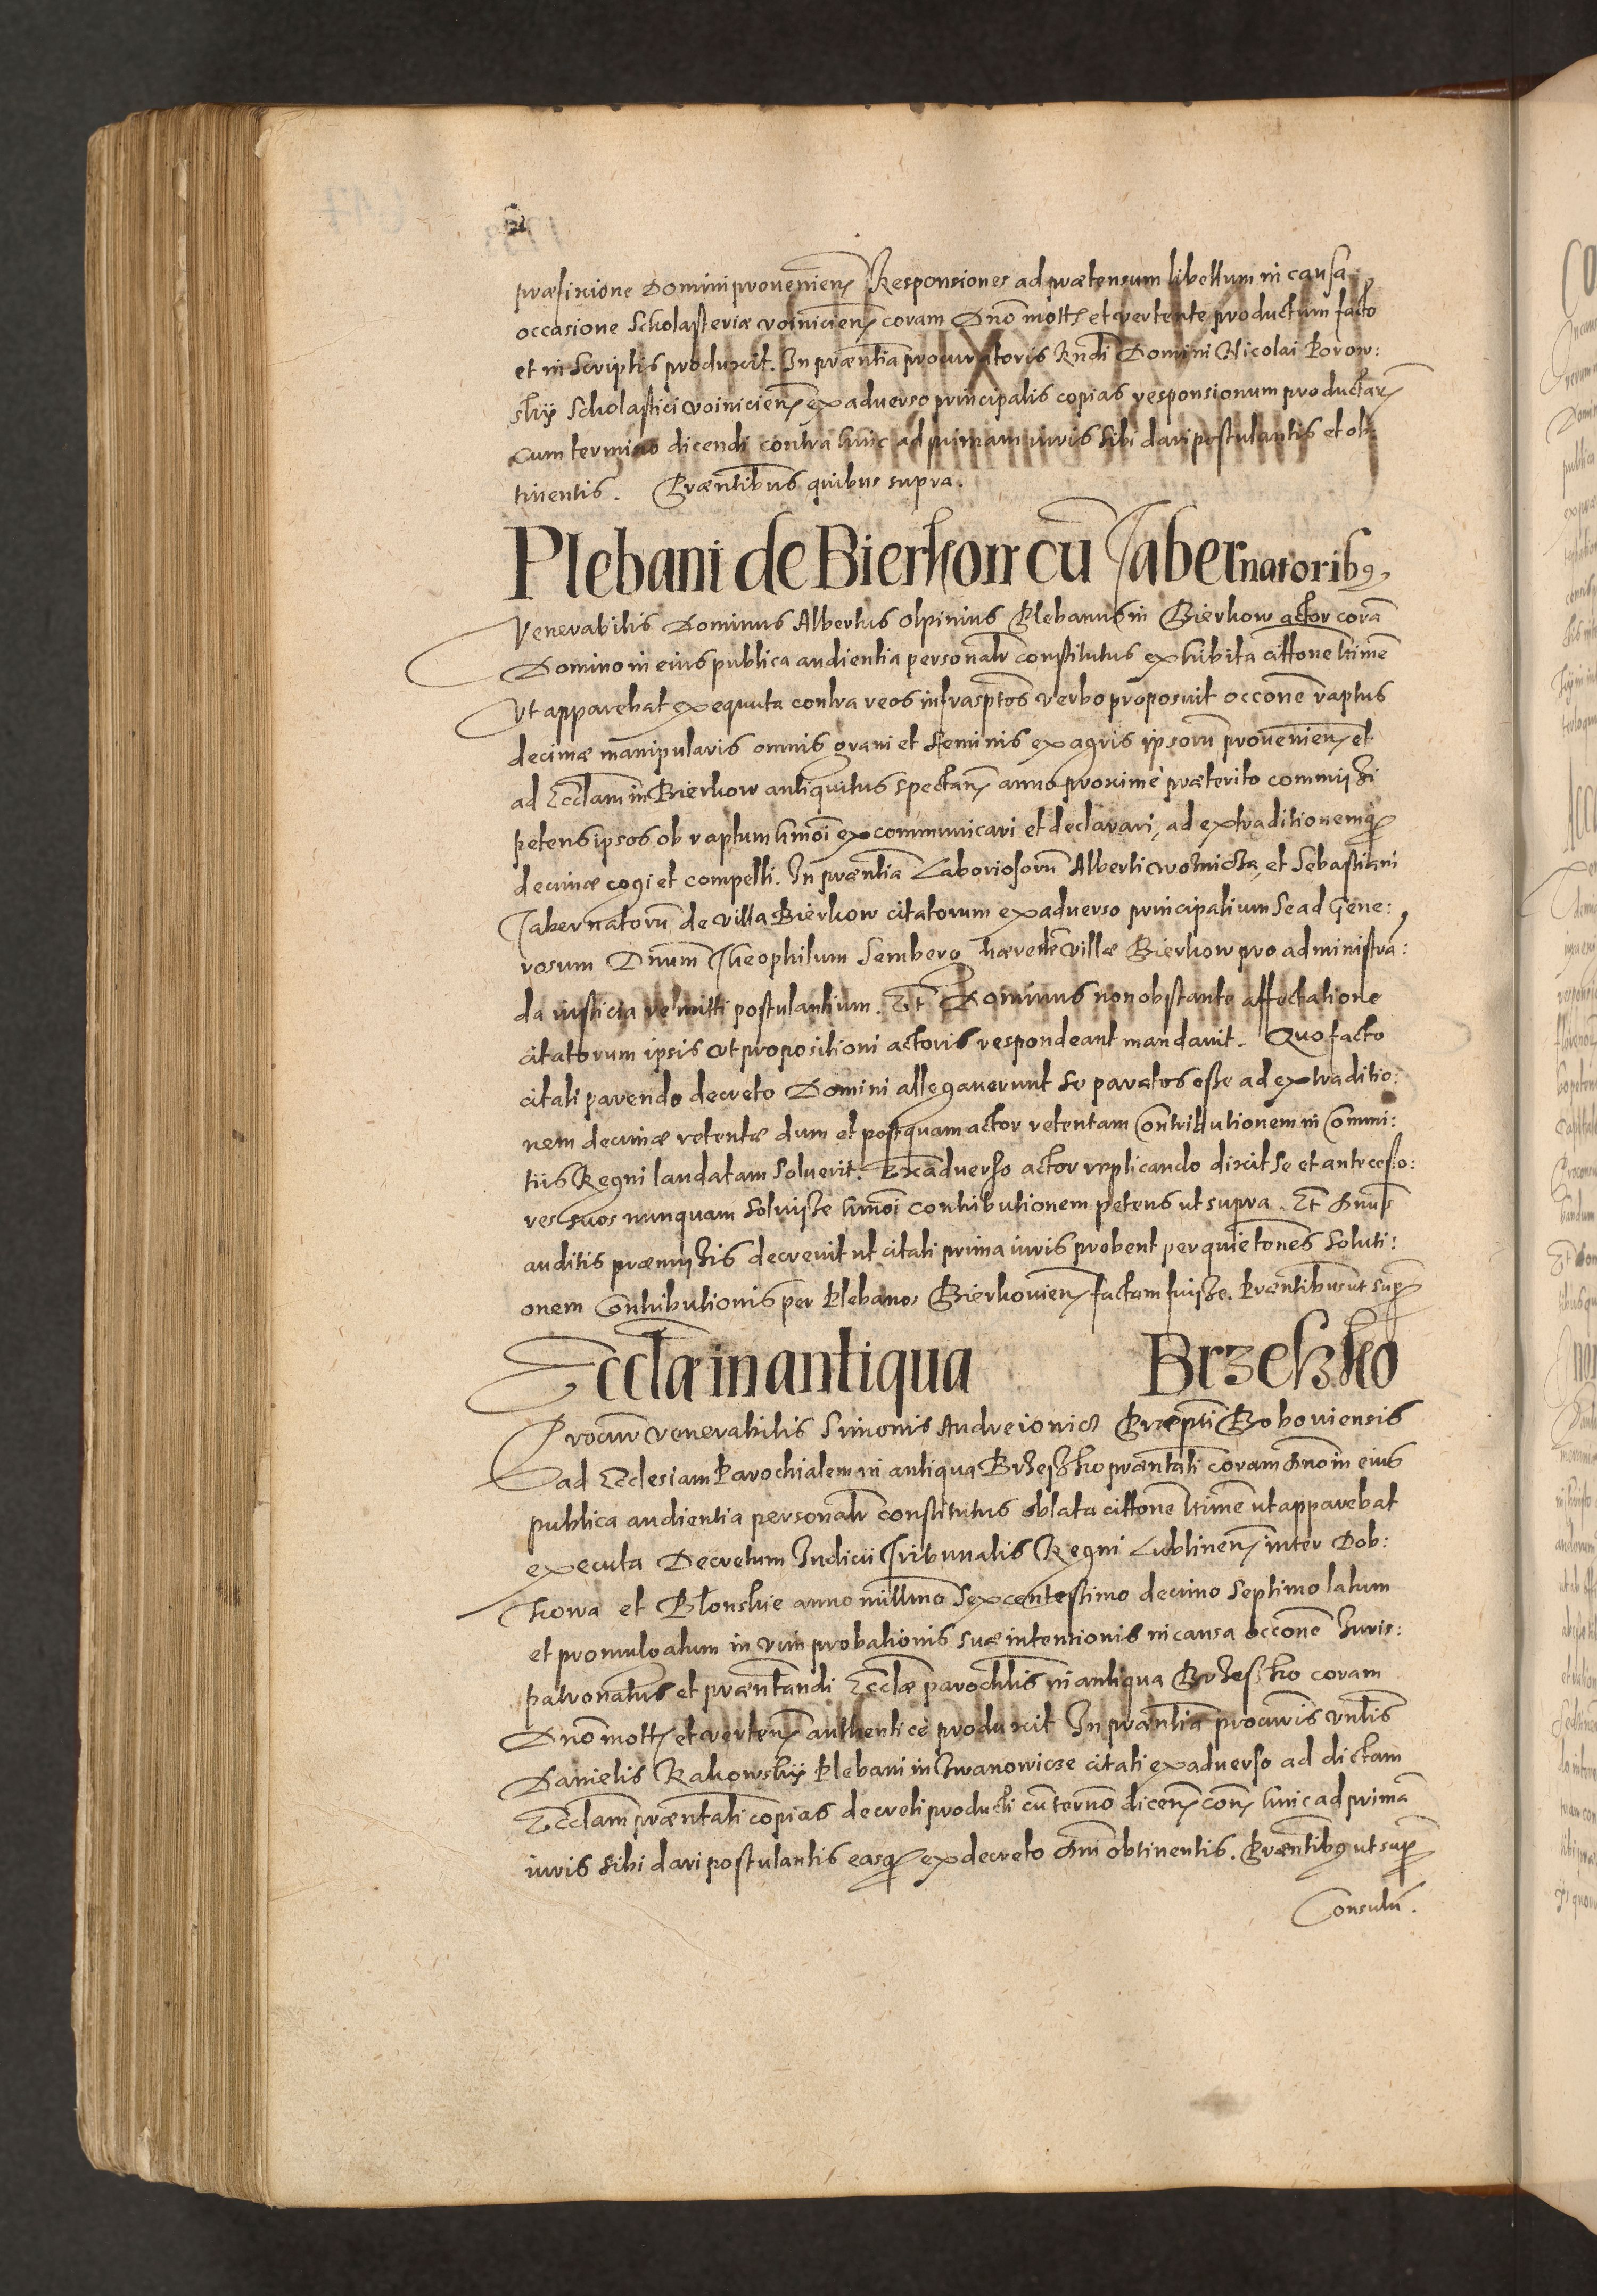 præfixione Domini prouenien Responsiones ad prætensum libellum in causa
occasione Scholasteriæ voinicien coram Dno mott et vertente productum facto
et in Scriptis produxit. In præntia procuratoris Rndi Domini Nicolai Porow:
skÿ Scholastici voinicien ex aduerso principalis copias responsionum productar
cum termino dicendi contra hinc ad primam iuris sibi dari postulantis et ob
tinentis. Præntibus quibus supra.
Plebani de Bierkow cū Tabernatorib9
Venerabilis Dominus Albertus Olpinius Plebanus in Bierkow actor corā
Domino in eius publica audientia personalr constitutus exhibita cittone ltime
Vt apparebat exequuta contra reos infrasptos verbo proposuit occone raptus
decimæ manipularis omnis grani et seminis ex agris ipsorū prouenien et
ad Ecclam in Bierkow antiquitus spectan anno proximè præterito commiſsi
petens ipsos ob raptum hmoi excommunicari et declarari, ad extraditionemq
decimæ cogi et compelli. In præntia Laboriosorū Alberti Wozniczka et Sebastiani
Tabernatorū de villa Bierkow citatorum ex aduerso principalium Se ad Gene:
rosum Dnum Theophilum Semberg hæredem villæ Bierkow pro administrā:
da iusticia remitti postulantium. Et Dominus non obstante affectatione
citatorum ipsis vt propositioni actoris respondeant mandauit. Quo facto
citati parendo decreto Domini allegauerunt Se paratos esse ad extraditio:
nem decimæ retentæ dum et postquam actor retentam Contributionem in Commi:
tiis Regni laudatam Soluerit. Ex aduerso actor replicando dixit Se et antecesso:
res suos nunquam Soluiſse hmoi contributionem petens ut supra. Et Dnus
auditis præmiſsis decreuit ut citati prima iuris probent per quietones Soluti:
onem Contributionis per Plebanos Bierkouien factam fuiſse. Præntibus ut supr
Ecclæ in antiqua Brzeſzko
Procur Venerabilis Simonis Andreionis Præpti Boboviensis
ad Ecclesiam Parochialem in antiqua Brzeſzko præntati coram Dno in eius
publica audientia personalr constitutus oblata cittone ltime ut apparebat
executa Decretum Iudicii Tribunalis Regni Lublinen inter Dob:
kowa et Błonskie anno millmo Sexcentesimo decimo Septimo latum
et promulgatum in vim probationis suæ intentionis in causa occone Iuris:
patronatus et præntandi Ecclæ parochlis in antiqua Brzeſzko coram
Dno mott et verten authenticè produxit In præntia procuris Vnlis
Danielis Rakowskÿ Plebani in Iwanowice citati ex aduerso ad dictam
Ecclam præntati copias decreti producti cū termo dicen con hinc ad primā
iuris sibi dari postulantis easq ex decreto Dni obtinentis. Præntib9 ut supr
Consulū.